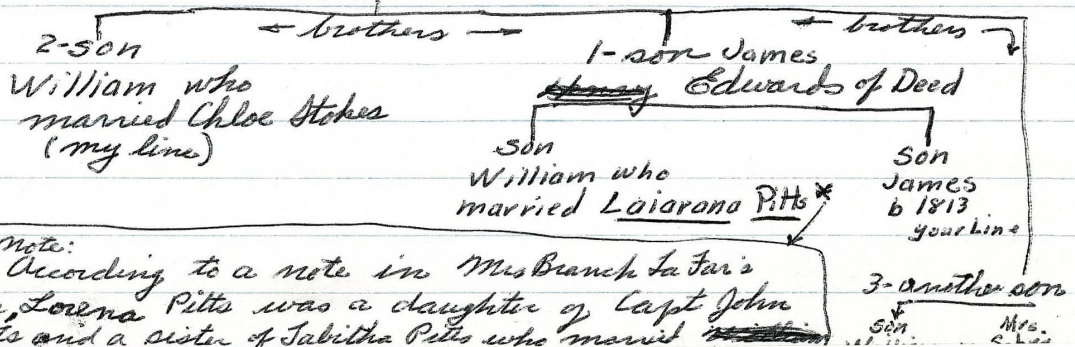 ← brothers →
← brothers
2-son
William who
married Chloe Stokes
(my line)
1-son James
Edwards of Deed
son
William who
married Laiarana Pitts *
Son
James
b 1813
your Line
Note:
According to a note in Mrs Branch La Far's
, Lorena Pitts was a daughter of Capt John
and a sister of Tabitha Pitts who married
3-another son
Son
Mrs.